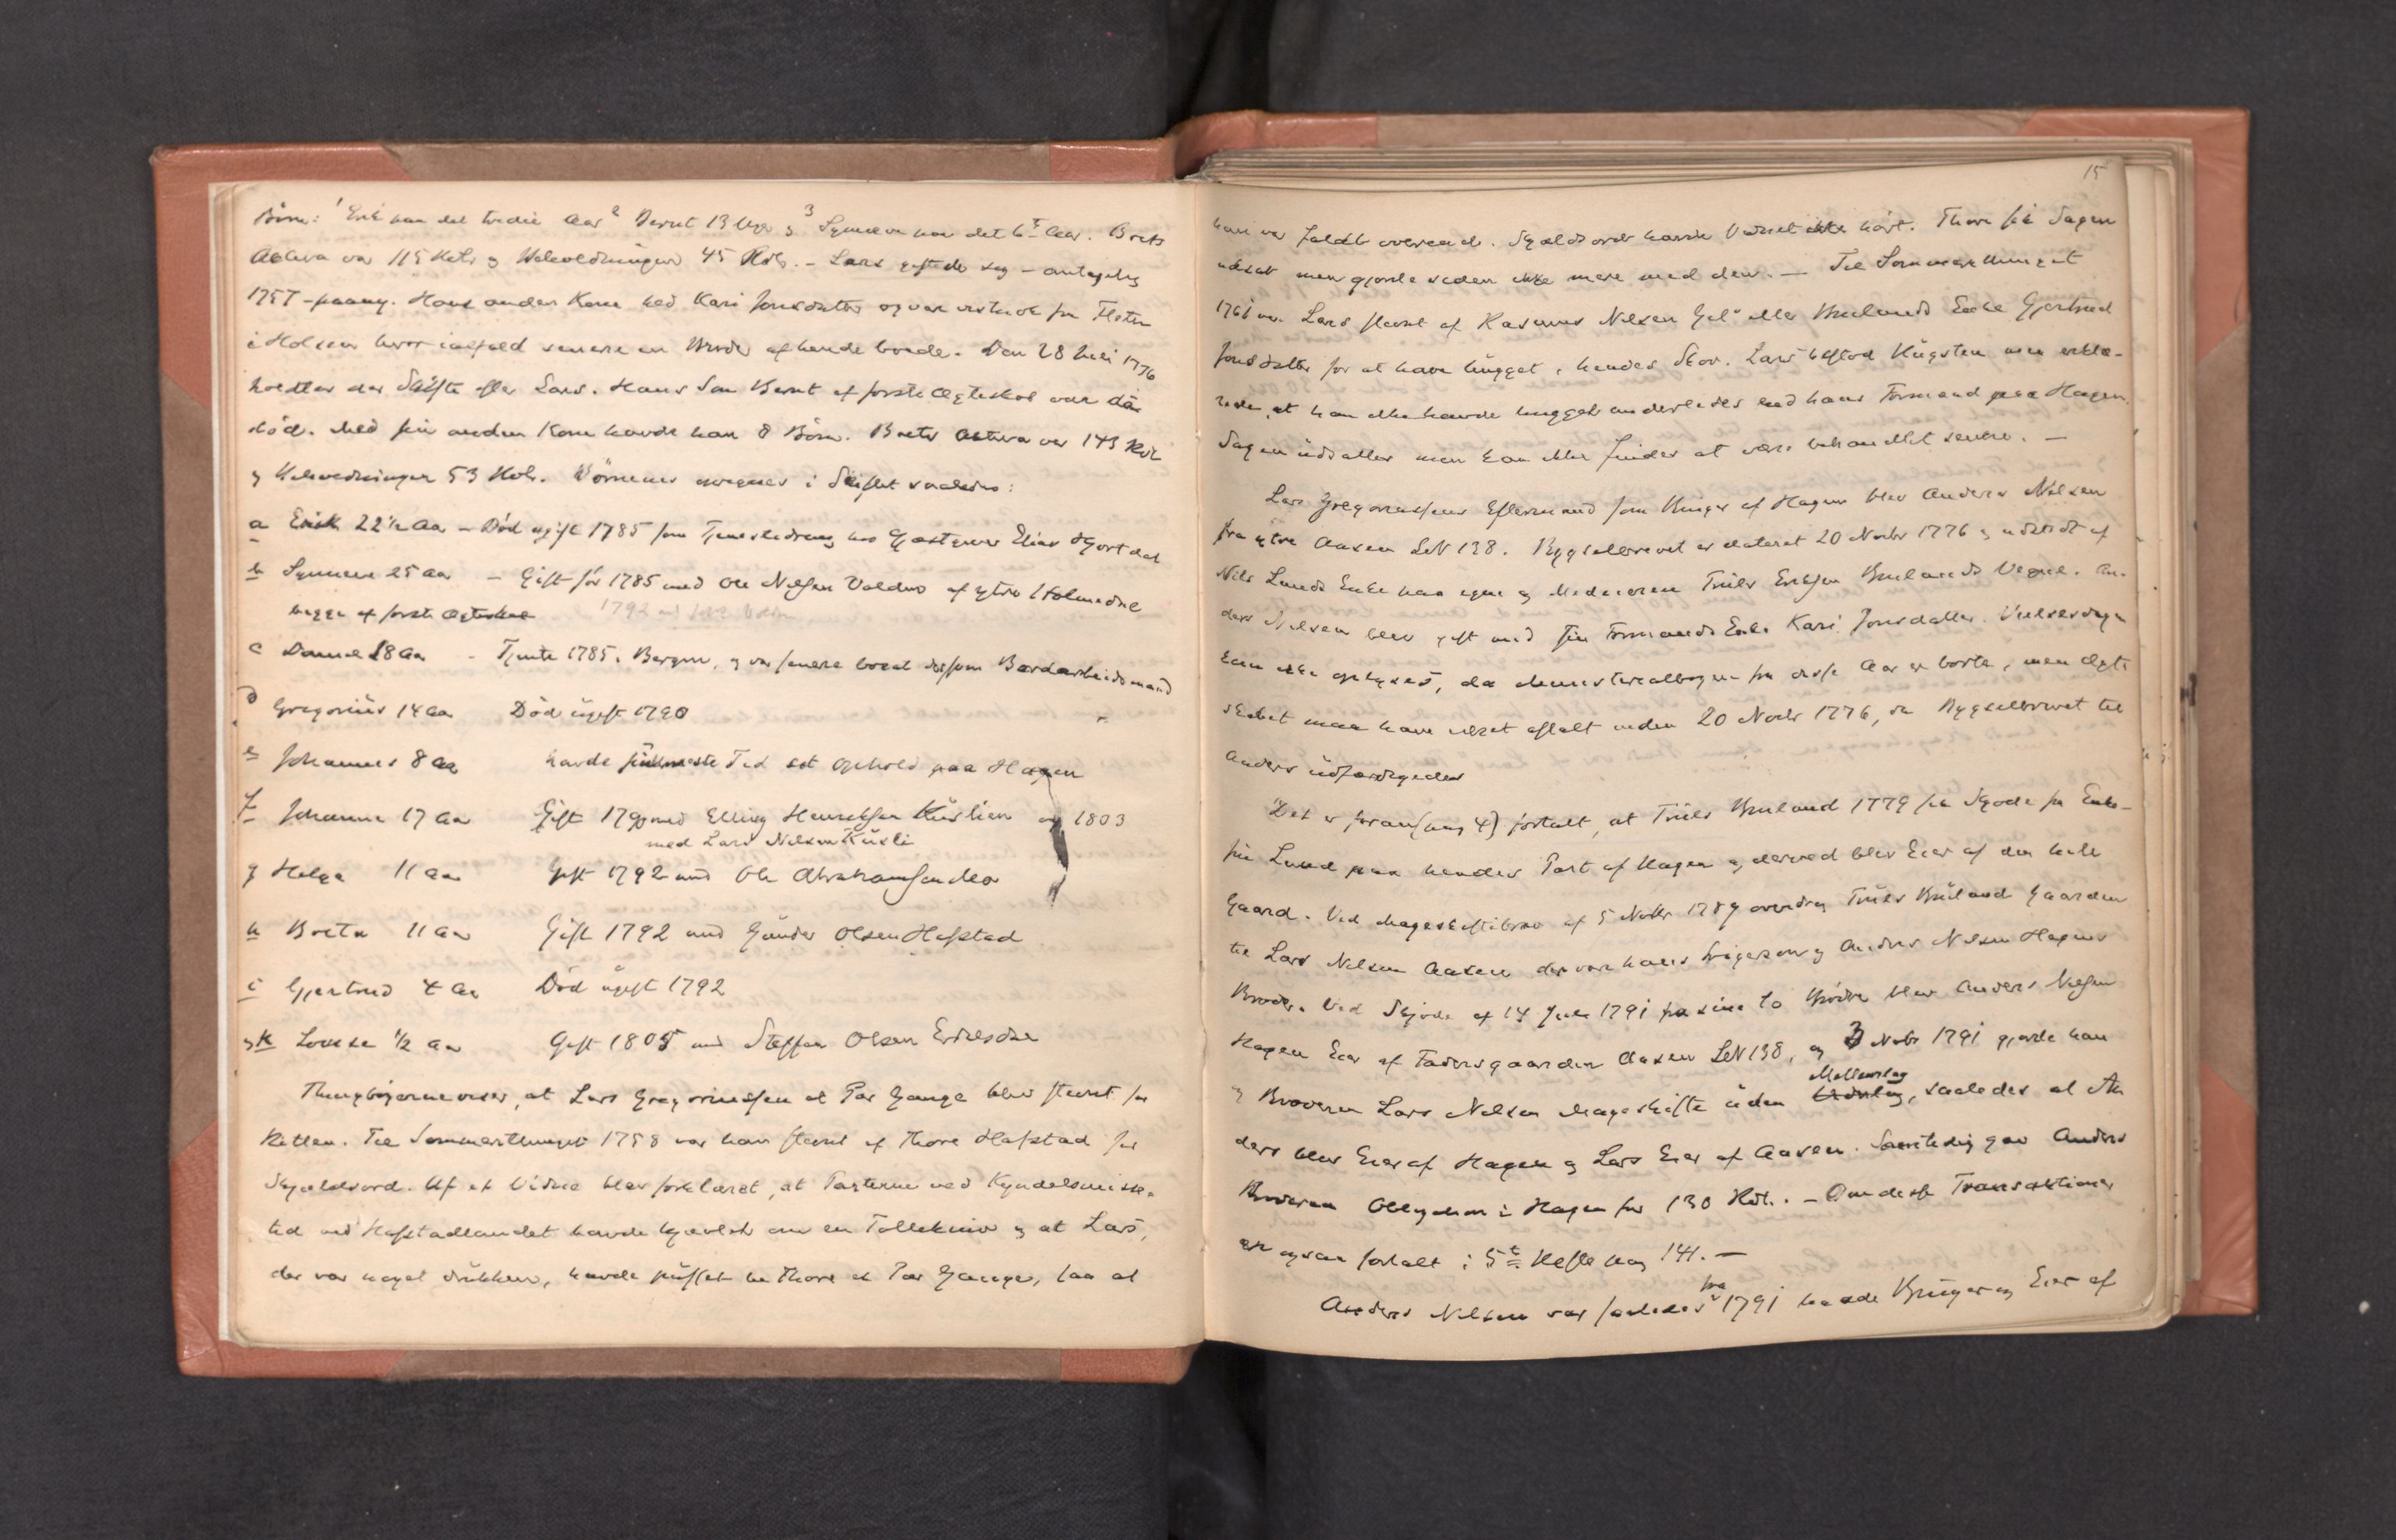 Börn: 1 Erik paa det tredie Aar 2 Bernt 13 Uger og 3 Synneve paa det 6te Aar. Boets
Activa var 115 Rdlr og Udredninger 45 Rdlr. - Lars giftede sig - antagelig
1757 - paany. Hans anden Kone hed Kari Jonsdatter og var vistnok fra Flaten
i Holsen hvor ialfald senere en Broder af hende boede. Den 28 Juli 1776
holdtes der Skifte efter Lars. Hans Sön Bernt af förste Ægteskab var da
död. Med sin anden Kone havde han 8 Börn. Boets Activa var 143 Rdlr
og Udredninger 53 Rdlr. Börnenes opregnes i Skiftet saaledes:
a Erik 22½ Aar - Död ugift 1785 som Tjenestedreng hos Gjæstgiver Elias Hjortdal
b Synneve 25 Aar - Gift för 1785 med Ole Nilsen Valdno af ytre Holmedal
begge af förste Ægteskab 1792
c Daniel 18 Aar - Tjente 1785 i Bergen, og var senere bosat der som Bordarbeidsmand
d Gregorius 14 Aar Död ugift 1790
e Johannes 8 Aar havde sidste Tid sit Ophold paa Hagen
f Johanne 17 Aar Gift 1790 med Elling Henriksen Kusslien og 1803
med Lars Nilsen Kusli
g Helga 11 Aar Gift 1792 med Ole Abrahamsen Mo
h Brita 11 Aar Gift 1792 med Gunder Olsen Hafstad
i Gjertrud 4 Aar Död ugift 1792
og k Lovise ½ Aar Gift 1805 med Steffen Olsen Eriksdal
Thingbögerne viser, at Lars Gregoriussen et Par Gange blev stevnt for
Retten. Til Sommerthinget 1758 var han stevnt af Thore Hafstad for
Skjældsord. Af et Vidne blev forklaret, at Parterne ved Kyndelsmisse-
tid ved Hafstadlandet havde kjævlet om en Tollekniv og at Lars,
der var noget drukken, havde puffet til Thore et Par Gange, saa at
15
han var faldt overende. Skjældsord havde Vidnet ikke hört. Thore fik Sagen
udsat men gjorde siden ikke mere med den. - Til Sommerthinget
1761 var Lars stevnt af Rasmus Nilsen eller Brulands Enke Gjertrud
Jonsdatter for at have hugget i hendes Skov. Lars tilstod Hugsten men erklæ-
rede, at han ikke havde hugget anderledes end hans Formand paa Hagen.
Sagen udsattes men kan ikke findes at være behandlet senere. -
Lars Gregoriussens Eftermand som Bruger af Hagen blev Anders Nilsen
fra ytre Aasen LN 138. Bygselbrevet er dateret 20 Novbr 1776 og udstedt af
Nils Lunds Enke paa egne og Medeieren Truls Eriksen Brulands Vegne. An-
ders Nilsen blev gift med sin Formands Enke Kari Jonsdatter. Vielsesdagen
kan ikke oplyses, da Ministerialbogen fra disse Aar er borte, men Ægte
skabet maa have været aftalt inden 20 Novbr 1776, da Bygselbrevet til
Anders udfærdigedes
Det er foran (pag 4) fortalt, at Truls Bruland 1779 fik Skjöde fra Enke-
frue Lund paa hendes Part af Hagen og derved blev Eier af den hele
Gaard. Ved Mageskiftebrev af 5 Novbr 1789 overdrog Truls Bruland Gaarden
til Lars Nilsen Aasen der var hans Svigersön og Anders Nilsen Hagens
Broder. Ved Skjöde af 14 Juli 1791 fra sine to Brödre blev Anders Nilsen
Hagen Eier af Fadersgaarden Aasen LN 138, og 3 Novbr 1791 gjorde han
og Broderen Lars Nilsen Mageskifte uden Mellemlag, saaledes at An
ders blev Eier af Hagen og Lars Eier af Aasen. Samtidig gav Anders
Broderen Obligation i Hagen for 130 Rdlr. - Om disse Transaktioner
er ogsaa fortalt i 5te Hefte pag 141. -
Anders Nilsen var saaledes fra 1791 baade Bruger og Eier af